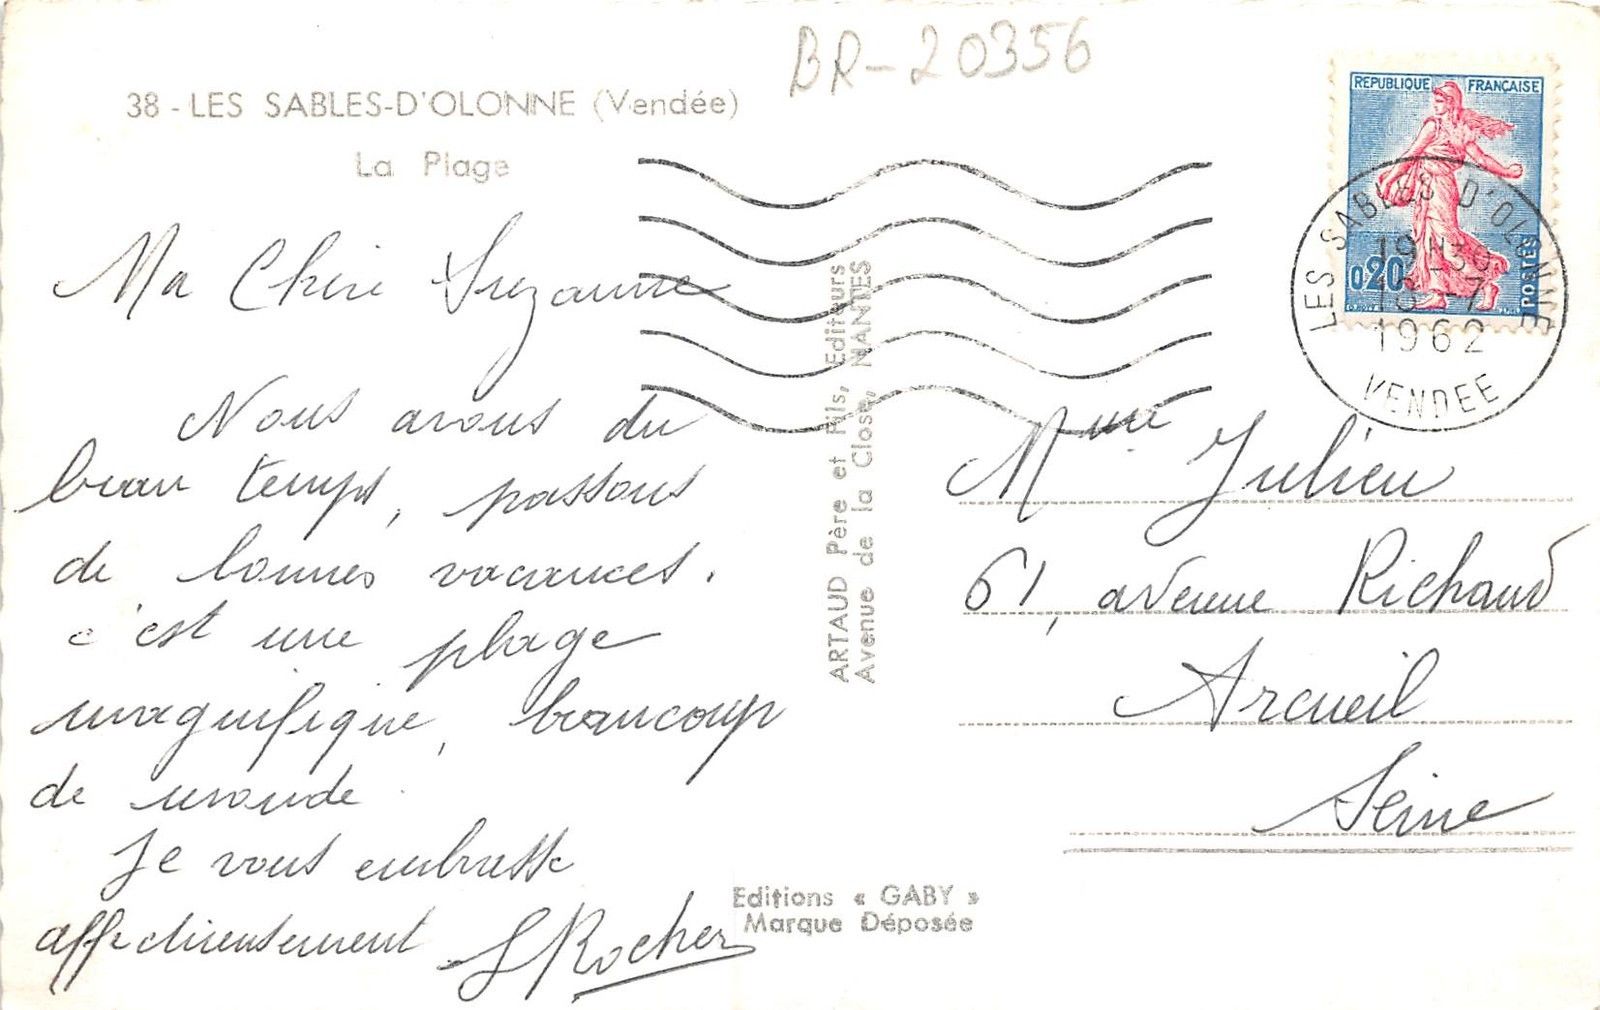 BR-20356
38 - LES SABLES-D'OLONNE (Vendée)
La Plage
Ma Chère Suzanne
Nous avons du
beau temps, passons
de bonnes vacances.
c'est une plage
magnifique, beaucoup
de monde.
Je vous embrasse
affectueusement
S Rocher
ARTAUD Père et Fils, Editeurs
Avenue de la Close, NANTES
Editions « GABY »
Marque Déposée
REPUBLIQUE FRANÇAISE
0,20
POSTES
LES SABLES D'OLONNE
19H30
-7
1962
VENDEE
Mme Julien
61, avenue Richaud
Arcueil
Seine